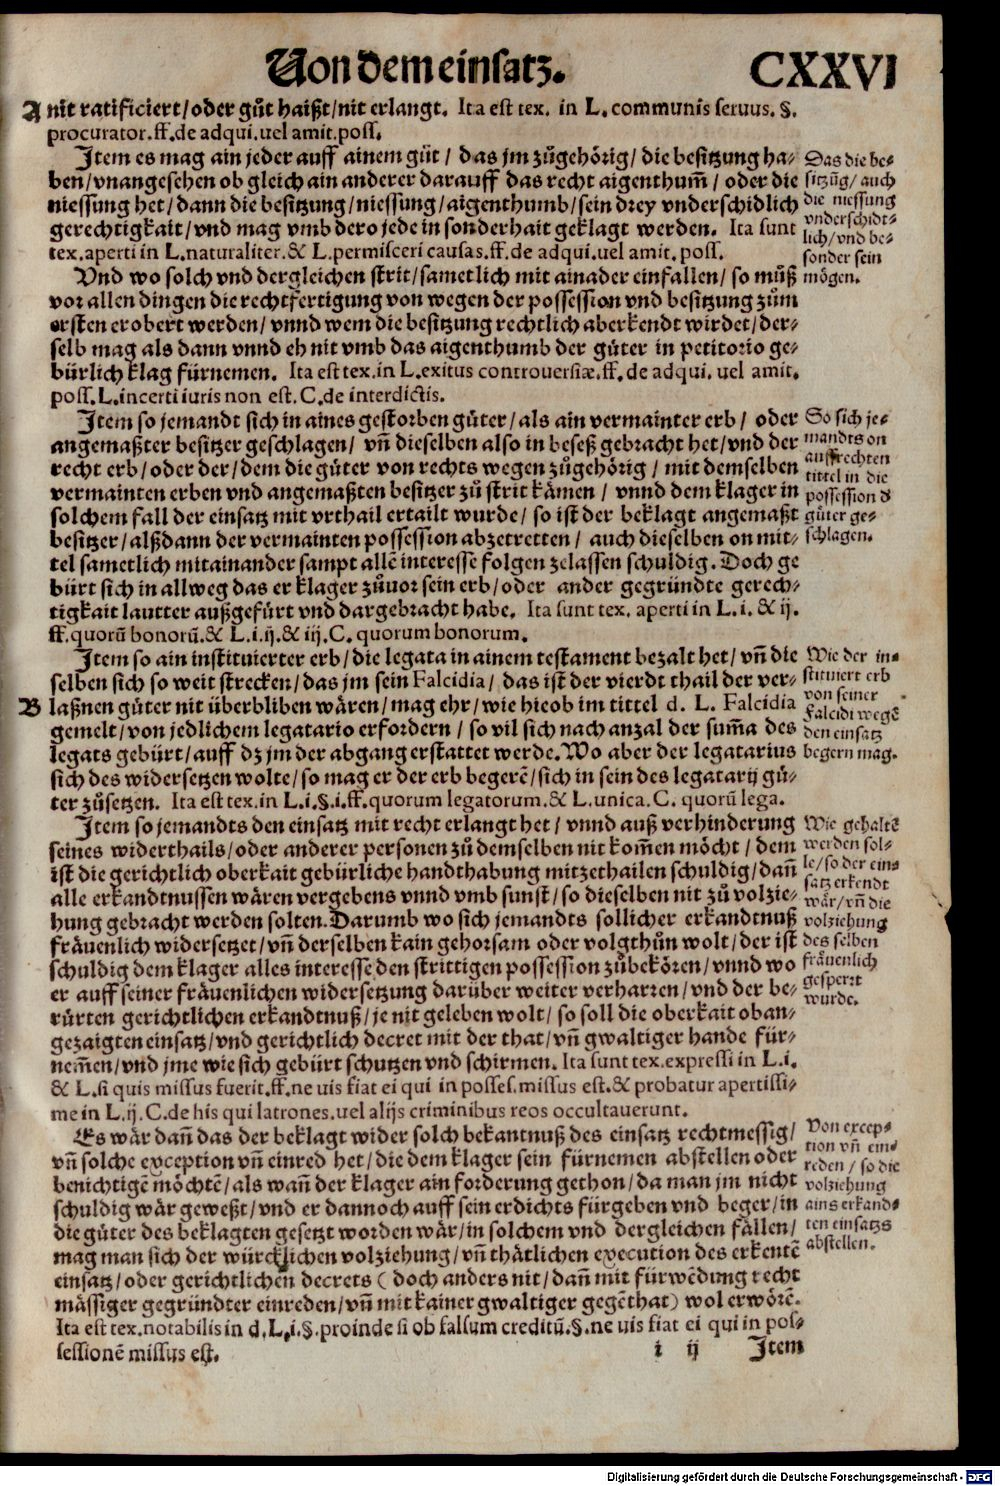 Von dem einsatz.
CXXVI
A nit ratificiert/oder gůt haißt/nit erlangt. Ita est tex. in L. communis seruus. §.
procurator.ff.de adqui.uel amit.poss.
Item es mag ain jeder auff ainem gůt/ das jm zůgehörig/die besitzung ha⸗
ben/vnangesehen ob gleich ain anderer darauff das recht aigenthum̃/ oder die
niessung het/dann die besitzung/niessung/aigenthumb/sein drey vnderschidlich
gerechtigkait/vnd mag vmb dero jede in sonderhait geklagt werden. Ita sunt
tex.aperti in L.naturaliter.& L.permisceri causas.ff.de adqui.uel amit. poss.
Das die be⸗
sitzũg/auch
die niessung
vnderschidt⸗
lich/vnd be⸗
sonder sein
mögen.
Vnd wo solch vnd dergleichen strit/sametlich mit ainader einfallen/so můß
vor allen dingen die rechtfertigung von wegen der possession vnd besitzung zům
ersten erobert werden/vnnd wem die besitzung rechtlich aberkendt wirdet/der⸗
selb mag als dann vnnd eh nit vmb das aigenthumb der güter in petitorio ge⸗
bürlich klag fürnemen. Ita est tex.in L.exitus controuersiæ.ff.de adqui. uel amit.
poss.L.incerti iuris non est.C.de interdictis.
Item so jemandt sich in aines gestorben güter/als ain vermainter erb/ oder
angemaßter besitzer geschlagen/ vñ dieselben also in beseß gebracht het/vnd der
recht erb/oder der/dem die güter von rechts wegen zůgehörig/mit demselben
vermainten erben vnd angemaßten besitzer zů strit kämen/ vnnd dem klager in
solchem fall der einsatz mit vrthail ertailt wurde/ so ist der beklagt angemaßt
besitzer/alßdann der vermainten possession abzetretten/ auch dieselben on mit⸗
tel sametlich mitainander sampt allẽ interesse folgen zelassen schuldig. Doch ge
bürt sich in allweg das er klager zůuor sein erb/oder ander gegründte gerech⸗
tigkait lautter außgefürt vnd dargebracht habe. Ita sunt tex. aperti in L. i. & ij.
ff.quorũ bonorũ.& L.i.ij.& iij.C. quorum bonorum.
So sich je⸗
mandts on
auffrechten
tittel in die
possession d
güter ge⸗
schlagen.
Item so ain instituierter erb/die legata in ainem testament bezalt het/vñ die
selben sich so weit strecken/das jm sein Falcidia/ das ist der vierdt thail der ver⸗
B laßnen güter nit überbliben wären/mag ehr/wie hieob im tittel d. L. Falcidia
gemelt/von jedlichem legatario erfordern/ so vil sich nach anzal der sum̃a des
legats gebürt/auff dz jm der abgang erstattet werde.Wo aber der legatarius
sich des widersetzen wolte/so mag er der erb begerẽ/sich in sein des legatarij gü⸗
ter zůsetzen. Ita est tex.in L.i.§.i.ff.quorum legatorum.& L.unica.C. quorũ lega.
Wie der in⸗
stituiert erb
von seiner
Falcidi wegẽ
den einsatz
begern mag.
Item so jemandts den einsatz mit recht erlangt het/ vnnd auß verhinderung
seines widerthails/oder anderer personen zů demselben nit kom̃en möcht/ dem
ist die gerichtlich oberkait gebürliche handthabung mitzethailen schuldig/dañ
alle erkandtnussen wären vergebens vnnd vmb sunst/so dieselben nit zů volzie⸗
hung gebracht werden solten.Darumb wo sich jemandts sollicher erkandtnuß
fräuenlich widersetzet/vñ derselben kain gehorsam oder volgthůn wolt/der ist
schuldig dem klager alles interesse den strittigen possession zůbekören/vnnd wo
er auff seiner fräuenlichen widersetzung darüber weiter verharren/vnd der be⸗
rürten gerichtlichen erkandtnuß/je nit geleben wolt/so soll die oberkait oban⸗
gezaigten einsatz/vnd gerichtlich decret mit der that/vñ gwaltiger hande für⸗
nem̃en/vnd jme wie sich gebürt schutzen vnd schirmen. Ita sunt tex.expressi in L.i.
& L.si quis missus fuerit.ff.ne uis fiat ei qui in posses.missus est.& probatur apertissi⸗
me in L.ij.C.de his qui latrones.uel alijs criminibus reos occultauerunt.
Wie gehaltẽ
werden sol⸗
le/so der ein⸗
satz erkendt
wär/vñ die
volziehung
des selben
fräuenlich
gesperrt
wurde.
Es wär dañ das der beklagt wider solch bekantnuß des einsatz rechtmessig/
vñ solche exception vñ einred het/die dem klager sein fürnemen abstellen oder
benichtigẽ möchtẽ/als wañ der klager ain forderung gethon/da man jm nicht
schuldig wär geweßt/vnd er dannoch auff sein erdichts fürgeben vnd beger/in
die güter des beklagten gesetzt worden wär/in solchem vnd dergleichen fällen/
mag man sich der würcklichen volziehung/vñ thätlichen execution des erkentẽ
einsatz/oder gerichtlichen decrets (doch anders nit/dañ mit fürwẽdung recht
mässiger gegründter einreden/vñ mit kainer gwaltiger gegẽthat) wol erwörẽ.
Ita est tex.notabilis in d.L.i.§.proinde si ob falsum creditũ.§.ne uis fiat ei qui in pos⸗
sessionẽ missus est.
Von excep⸗
tion vñ ein⸗
reden/so die
volziehung
ains erkand⸗
ten einsatzs
abstellen.
i ij
Item
Digitalisierung gefördert durch die Deutsche Forschungsgemeinschaft - DFG